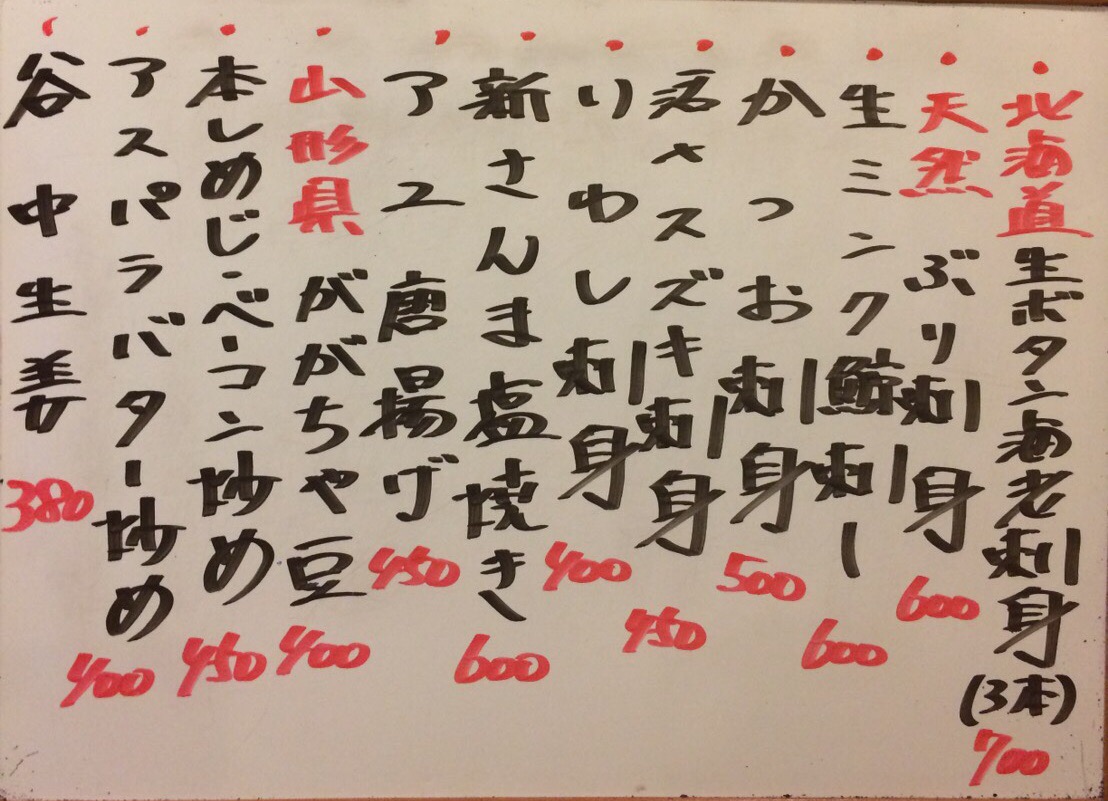 ・北海道生ボタン海老刺身(3本) 700
・天然ぶり刺身 600
・生ミンク鯨刺し 600
・かつお刺身 500
・活〆スズキ刺身 450
・いわし刺身 400
・新さんま塩焼き 600
・アユ唐揚げ 450
・山形県ががちゃ豆 400
・本しめじ・ベーコン炒め 450
・アスパラバター炒め 400
・谷中生姜 380